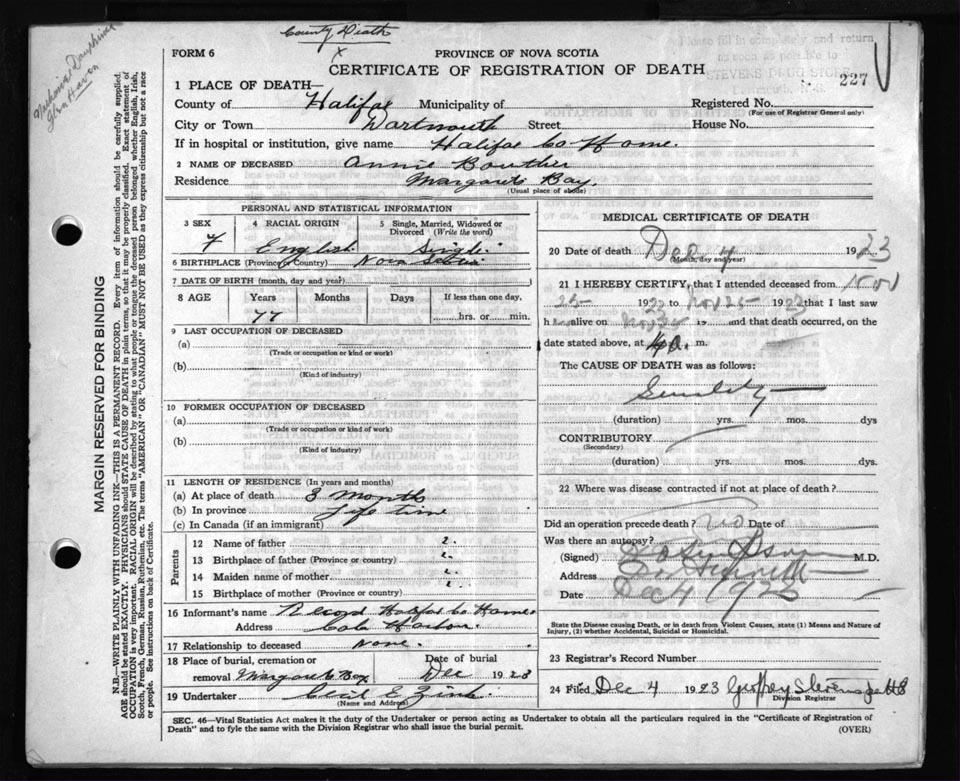 County Death
x
FORM 6
PROVINCE OF NOVA SCOTIA
CERTIFICATE OF REGISTRATION OF DEATH
227
Please fill in completely and return
as soon as possible to
STEVENS DRUG STORE
Dartmouth, N.S.
Glen Haven
1 PLACE OF DEATH—
County of Halifax Municipality of Registered No.
(For use of Registrar General only)
City or Town Dartmouth Street House No.
If in hospital or institution, give name Halifax Co Home.
2 NAME OF DECEASED Annie Bouther
Residence Margarets Bay.
(Usual place of abode)
PERSONAL AND STATISTICAL INFORMATION
3 SEX 4 RACIAL ORIGIN 5 Single, Married, Widowed or Divorced (Write the word)
F English Single
6 BIRTHPLACE (Province or Country) Nova Scotia
7 DATE OF BIRTH (month, day and year)
8 AGE Years Months Days If less than one day,
77 hrs. or min.
9 LAST OCCUPATION OF DECEASED
(a)
(Trade or occupation or kind or work)
(b)
(Kind of industry)
10 FORMER OCCUPATION OF DECEASED
(a)
(Trade or occupation or kind or work)
(b)
(Kind of industry)
11 LENGTH OF RESIDENCE (In years and months)
(a) At place of death 3 months
(b) In province Life time
(c) In Canada (if an immigrant)
Parents
12 Name of father ?
13 Birthplace of father (Province or country) ?
14 Maiden name of mother ?
15 Birthplace of mother (Province or country)
16 Informant's name Record Halifax Co Home
Address Cole Harbour.
17 Relationship to deceased None.
18 Place of burial, cremation or removal Margarets Bay Date of burial Dec 1923
19 Undertaker Cecil E Zink
(Name and Address)
MEDICAL CERTIFICATE OF DEATH
20 Date of death Dec 4 1923
(Month, day and year)
21 I HEREBY CERTIFY, that I attended deceased from Nov
25 1923 to Nov 25 1923 that I last saw
h alive on Nov 19 and that death occurred, on the
date stated above, at 4 a. m.
The CAUSE OF DEATH was as follows:
Senility
(duration) yrs. mos. dys
CONTRIBUTORY
(Secondary)
(duration) yrs. mos. dys.
22 Where was disease contracted if not at place of death?
Did an operation precede death? no Date of
Was there an autopsy?
(Signed) M.D.
Address
Date Dec 4 1923
State the Disease causing Death, or in death from Violent Causes, state (1) Means and Nature of
Injury, (2) whether Accidental, Suicidal or Homicidal.
23 Registrar's Record Number
24 Filed Dec 4 1923 Geoffrey Stevens
Division Registrar
SEC. 46—Vital Statistics Act makes it the duty of the Undertaker or person acting as Undertaker to obtain all the particulars required in the "Certificate of Registration of
Death" and to fyle the same with the Division Registrar who shall issue the burial permit.
(OVER)
MARGIN RESERVED FOR BINDING
N.B.—WRITE PLAINLY WITH UNFADING INK—THIS IS A PERMANENT RECORD. Every item of information should be carefully supplied.
AGE should be stated EXACTLY. PHYSICIANS should STATE CAUSE OF DEATH in plain terms, so that it may be properly classified. Exact statement of
OCCUPATION is very important. RACIAL ORIGIN will be described by stating to what people or tongue the deceased person belonged whether English, Irish,
Scotch, French, German, Russian, Ruthenian, etc. The terms "AMERICAN" OR "CANADIAN" MUST NOT BE USED as they express citizenship but not a race
or people. See instructions on back of Certificate.